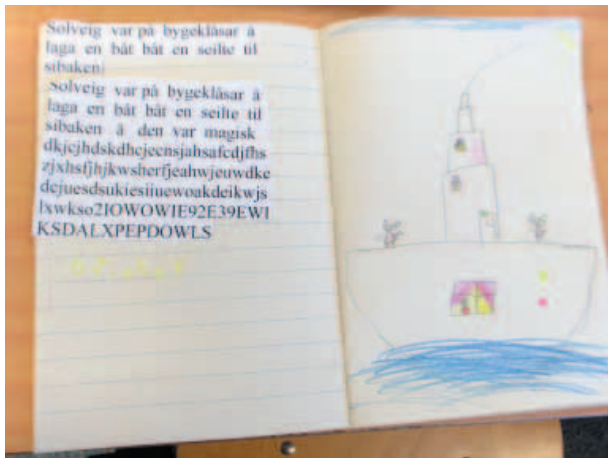 Solveig var på bygeklåsar å
laga en båt båt en seilte til
sibaken
Solveig var på bygeklåsar å
laga en båt båt en seilte til
sibaken å den var magisk
dkjcjhdskdhcjecnsjahsafcdjfhs
zjxhsfjhjkwsherfjeahwjeuwdke
dcjuesdsukiesiiuewoakdeikwjs
lxwkso2IOWOWIE92E39EWI
KSDALXPEPDOWLS